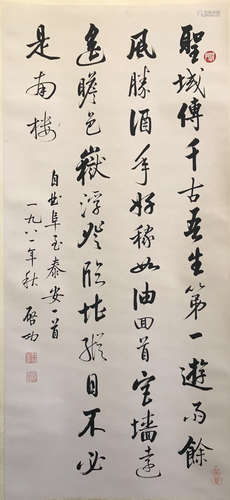 聖域傳千古吾生第一遊雨餘
風勝酒年好稼如油回首宮牆遠
遙瞻岱嶽浮登臨堪縱目不必
是南樓
自曲阜至泰安一首
一九八一年秋 啓功